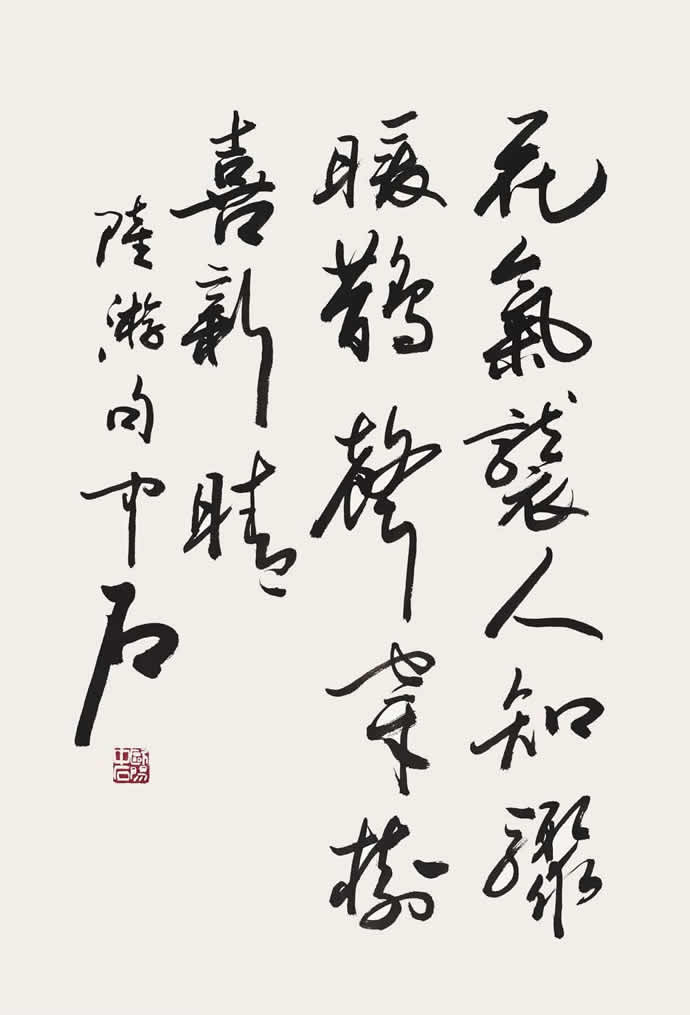 花氣襲人知驟
暖鵲聲穿樹
喜新晴
陸游句中石
歐陽
中石